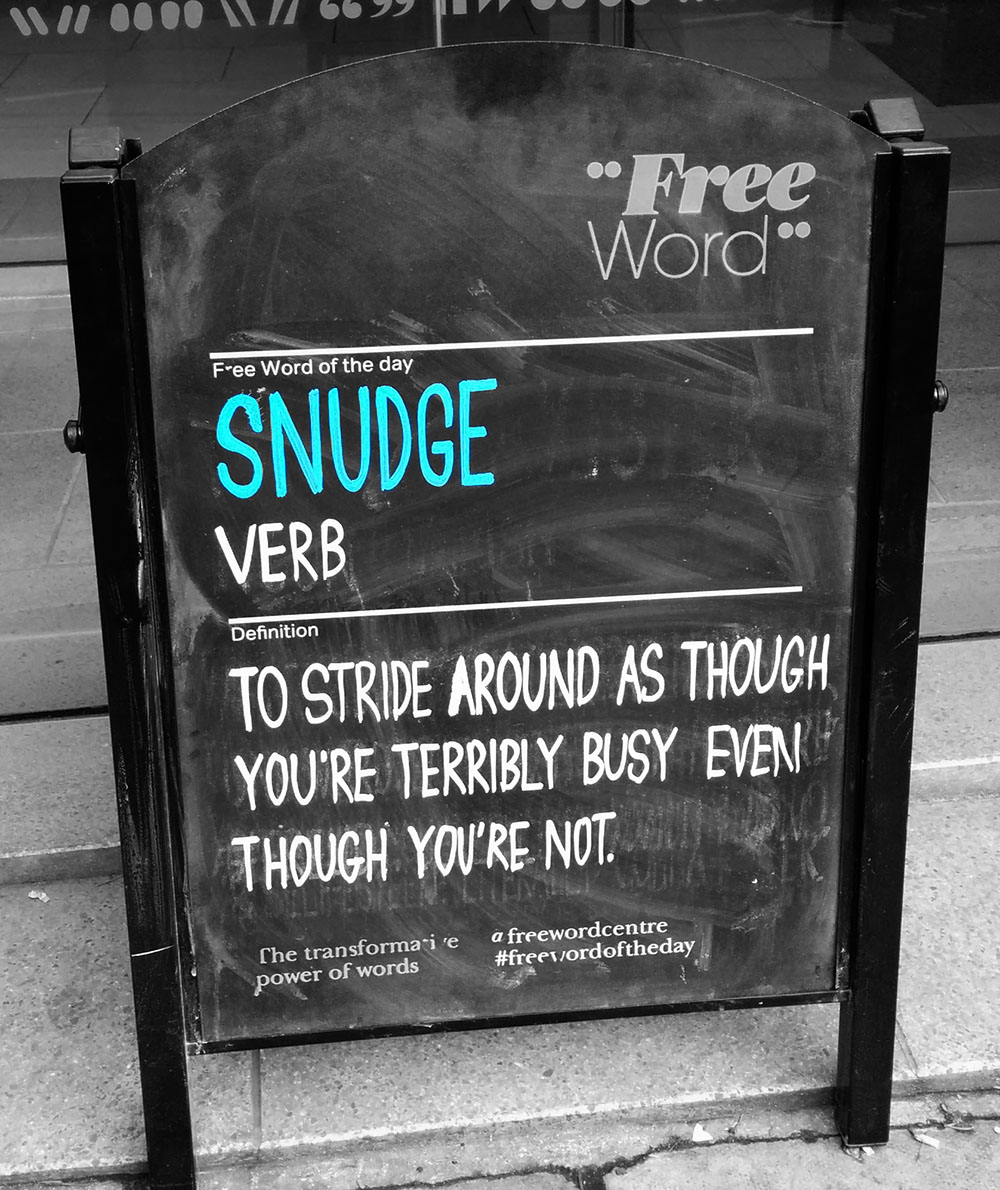 “Free
Word”
Free Word of the day
SNUDGE
VERB
Definition
TO STRIDE AROUND AS THOUGH
YOU'RE TERRIBLY BUSY EVEN
THOUGH YOU'RE NOT.
The transformative
power of words
@freewordcentre
#freewordoftheday